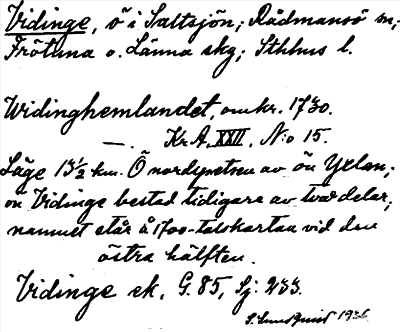 Vidinge, ö i Saltsjön; Rådmansö sn;
Frötuna o. Länna skg; Sthlms l.
Widinghemlandet, omkr. 1730.
—. Kr A, XXII, N:o 15.
Läge 13½ km. Ö nordspetsen av ön Yxlan;
ön Vidinge bestod tidigare av två delar;
namnet står å 1700-talskartan vid den
östra hälften.
Vidinge ek, G. 85, Sj: 233.
S. Lundquist 1936